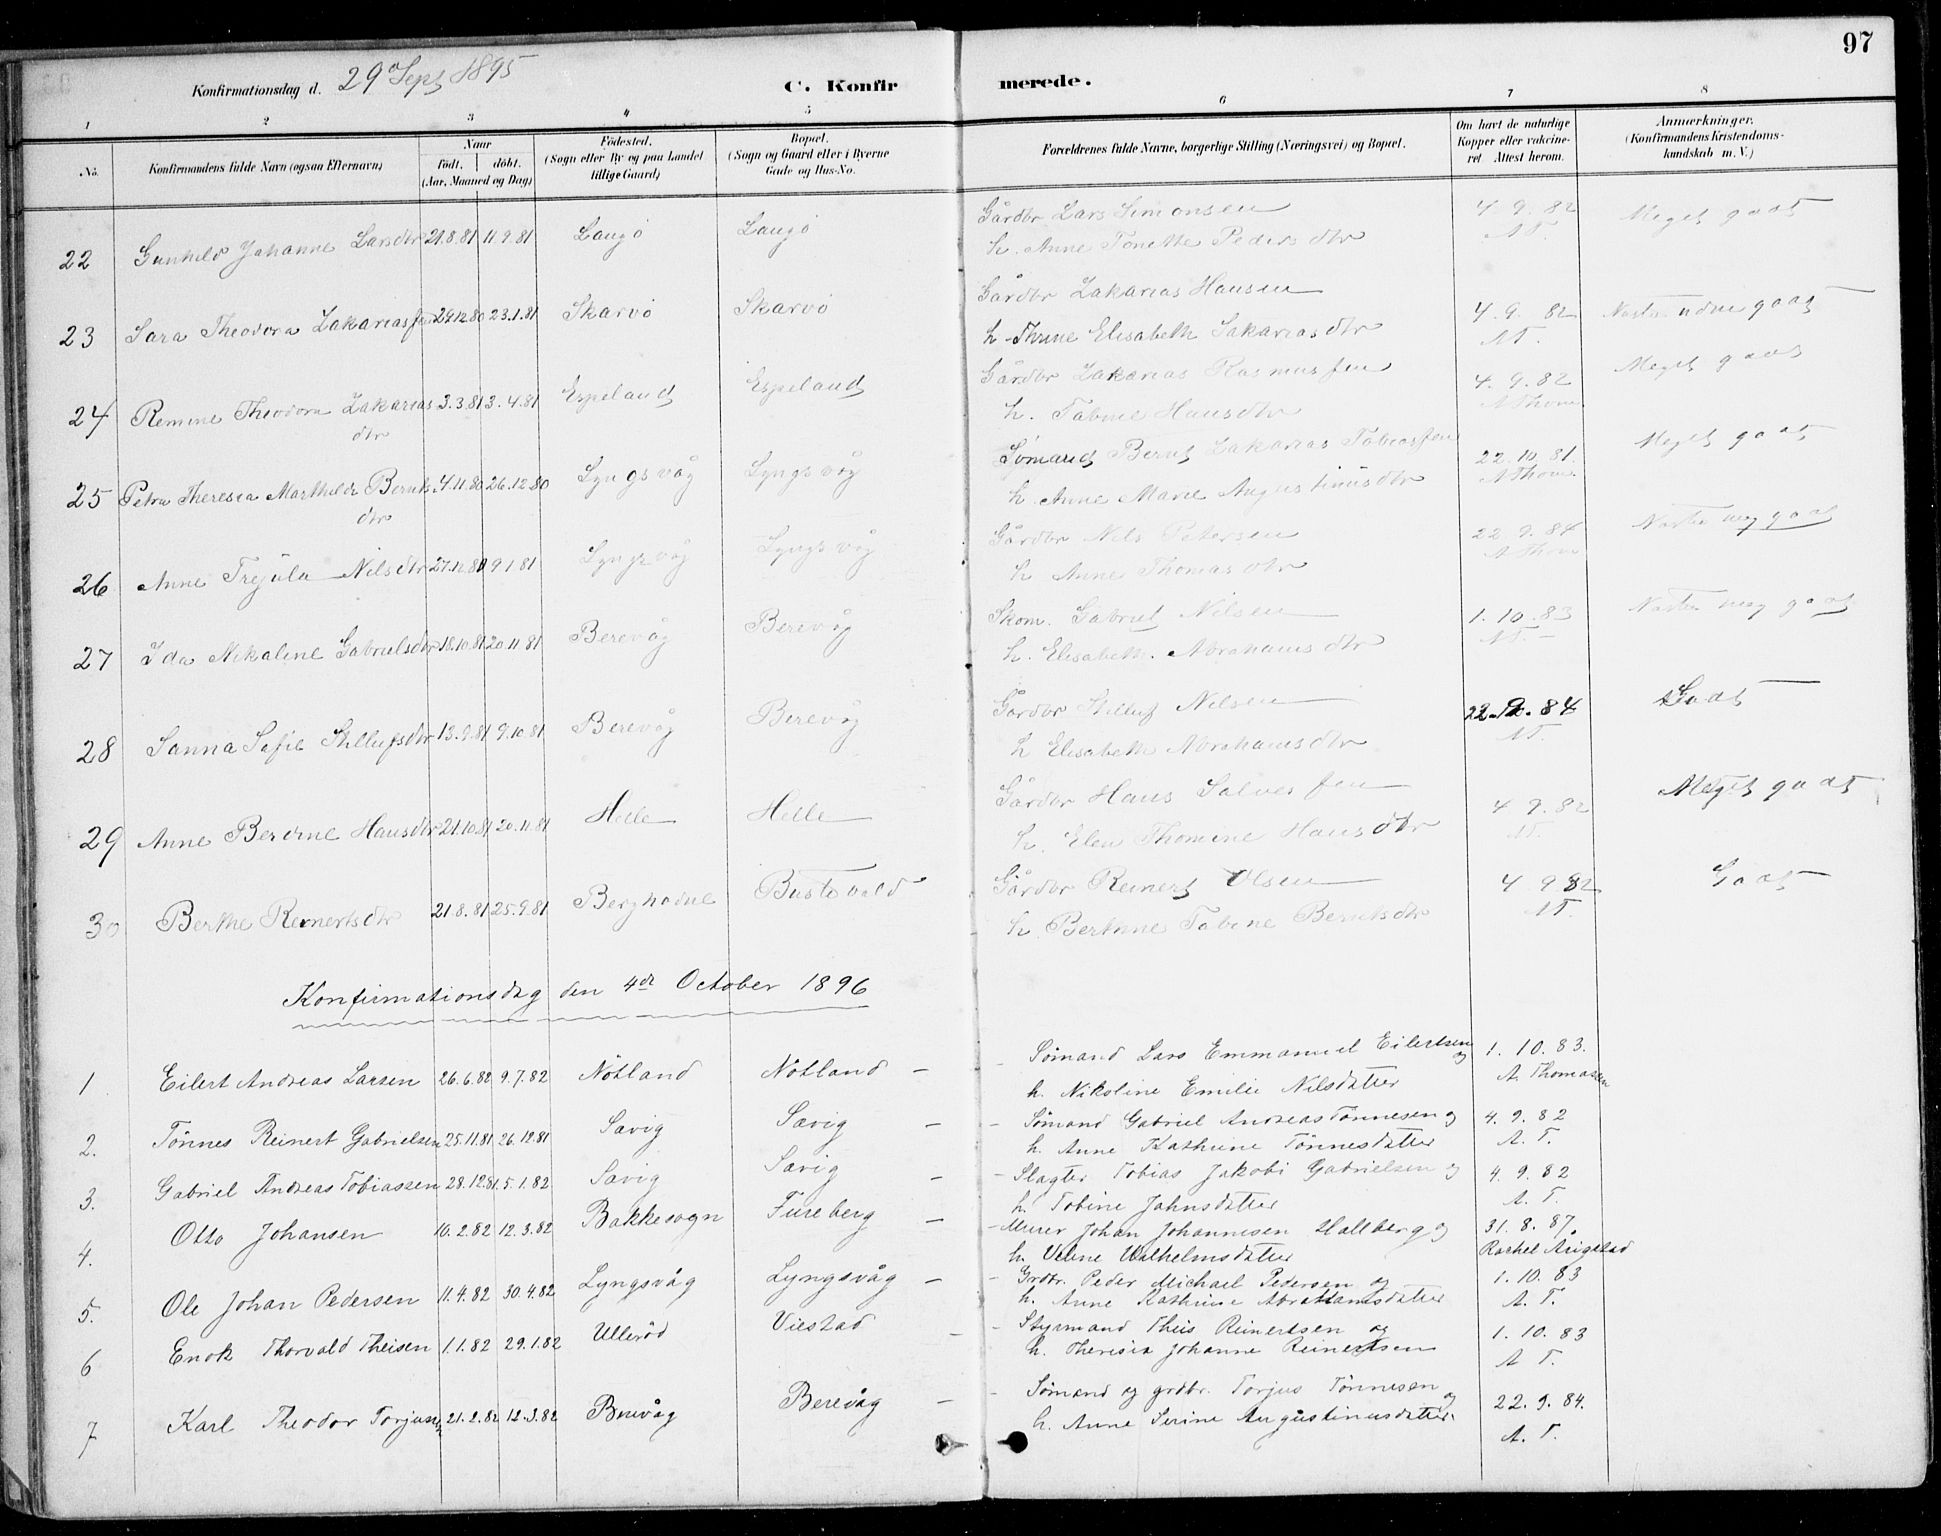 97
Konfirmationsdag d. 29 Sept 1895 C. Konfir merede.
1 2 3 4 5 6 7 8
No. Konfirmandens fulde Navn (ogsaa Efternavn) Naar födt. döbt. (Aar, Maaned og Dag) Födested. (Sogn eller By og paa Landet tillige Gaard) Bopæl. (Sogn og Gaard eller i Byerne Gade og Hus-No. Forældrenes fulde Navne, borgerlige Stilling (Næringsvei) og Bopæl. Om havt de naturlige Kopper eller vakcineret Attest herom. Anmærkninger. (Konfirmandens Kristendomskundskab m. V.)
22 Gunhild Johanne Larsdtr 21.8.81 11.9.81 Langö Langö Gårdbr Lars Simonsen 4. 9. 82 Meget godt
h. Anne Tonette Peders dtr AT.
23 Sara Theodora Zakariasfen 29.12.80 23.1.81 Skarvö Skarvö Gårdbr Zakarias Hansen 4. 9. 82 godt
h. Thrine Elisabeth Sakarias dtr AT.
24 Remine Theodora Zakarias dtr 3.3.81 3.4.81 Espeland Espeland Gårdbr Zakarias Rasmusfen 4. 9. 82 Meget godt
h. Tabine Hansdtr A Thom.
25 Petra Theresia Marthilde Bernts dtr 4.11.80 26.12.80 Lyngsvåg Lyngsvåg Sømand Bernt Zakarias Tobiasfen 22.10.81. Meget godt
h. Anne Marie Augustinusdtr A Thom.
26 Anne Nilsdtr 9.1.81 Lyngsvåg Lyngsvåg Gårdbr Nils Petersen 22 9. 84 Næsten meg godt
h Anne Thomas dtr A Thom
27 Ida Nikaline Gabrielsdtr 18.10.81 20.11.81 Berevåg Berevåg Skom. Gabriel Nilsen 1. 10. 83 Næsten meg godt
h. Elisabeth Abrahams dtr AT.
28 Sanna Sofie Stillufsdtr 13.9.81 9.10.81 Berevåg Berevåg Gårdbr Stilluf Nilsen 84 Godt
h Elisabeth Abrahamsdtr AT.
29 Anne Berdine Hansdtr 21.10.81 20.11.81 Helle Helle Gårdbr Hans Salvesfen 4 9. 82 Meget godt
h. Elen Thomine Hansdtr AT.
30 Berthe Reinertsdtr 21.8.81 25.9.81 Gårdbr Reinert Olsen 4 9 82 Godt
h. Tabine Berntsdtr AT.
Konfirmationsdag den 4de October 1896
1 Eilert Andreas Larsen 26.6.82 9.7.82 Nötland Nötland – – Sømand Lars Emmanuel Eilertsen og 1. 10. 83.
h. Nikoline Emilie Nilsdatter A. Thomassen
2. Tønnes Reinert Gabrielsen 25.11.81 26.12.81 Sævig Sævig – – Sømand Gabriel Andreas Tønnesen og 4. 9. 82
h. Anne Kathrine Tønnesdatter A. T.
3. Gabriel Andreas Tobiassen 28.12.81 5.1.82 Sævig Sævig – – Slagter Tobias Jakobi Gabrielsen og 4. 9. 82
h. Tobine Jahnsdatter A. T.
4. Otto Johansen 10.2.82 12.3.82 Bakkesogn Fureberg – – Murer Johan Johannesen Hallberg og 31. 8. 87.
h. Veline Wilhelmsdatter Rachel
5. Ole Johan Pedersen 11.4.82 30.4.82 Lyngsvåg Lyngsvåg – – Grdbr. Peder Michael Pedersen og 1. 10. 83
h. Anne Kathrine Abrahamsdatter A. T.
6 Enok Thorvald Theisen 1.1.82 29.1.82 Ulleröd Viestad – – Styrmand Theis Reinertsen og 1. 10. 83
h. Theresia Johanne Reinertsen A T.
7 Karl Theodor Torjusen 21.2.82 12.3.82 Berevåg Berevåg – – Sømand og grdbr. Torjus Tønnesen og 22. 9. 84.
h. Anne Serine Augustinusdatter. A. T.